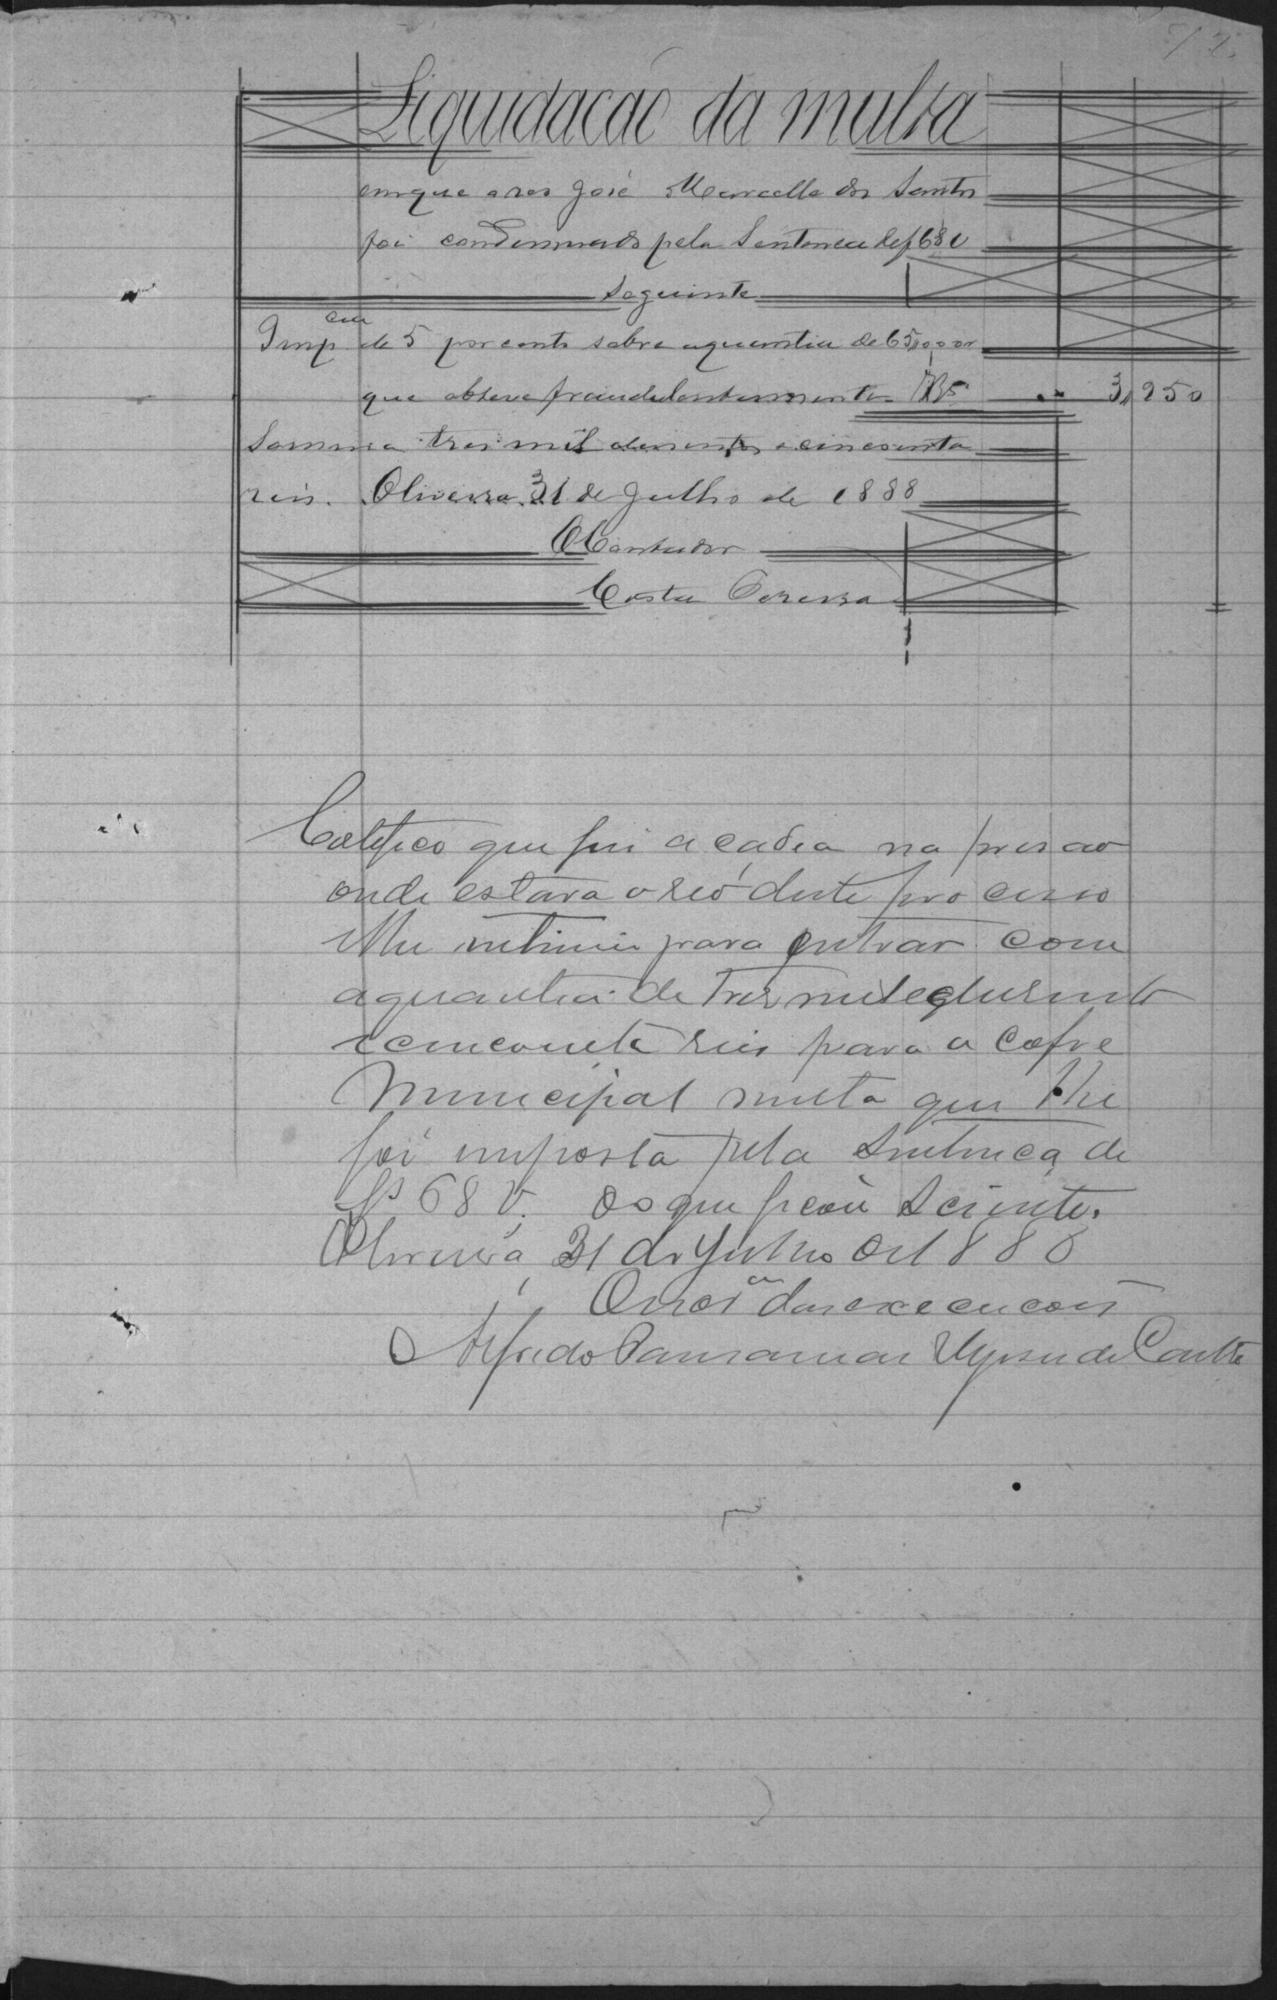 72
Liquidacão da multa
em que o reo José Marcello dos Santos
foi condemnado pela Sentenca de fl 68 v
Seguinte
Imp.cia de 5 por cento sobre a quantia de 65,000 or
que obteve fraudulentamente RS 3,250
Somma tres mil duzentos e cincoenta
reis. Oliveira 31 de Julho de 1888
O Contador
Costa Pereira
Certifico que fui a cadea na prisao
onde estava o reó deste processo
Ahi intimei para entrar com
a quantia de Tres mil e duzento
e cincoenta reis para o cofre
Municipal multa que lhe
foi imposta pela Sentenca de
fls 68 v. do que ficou Sciente.
Oliveira 31 de Julho de 1888
O escr.am das execucoes
Alfredo